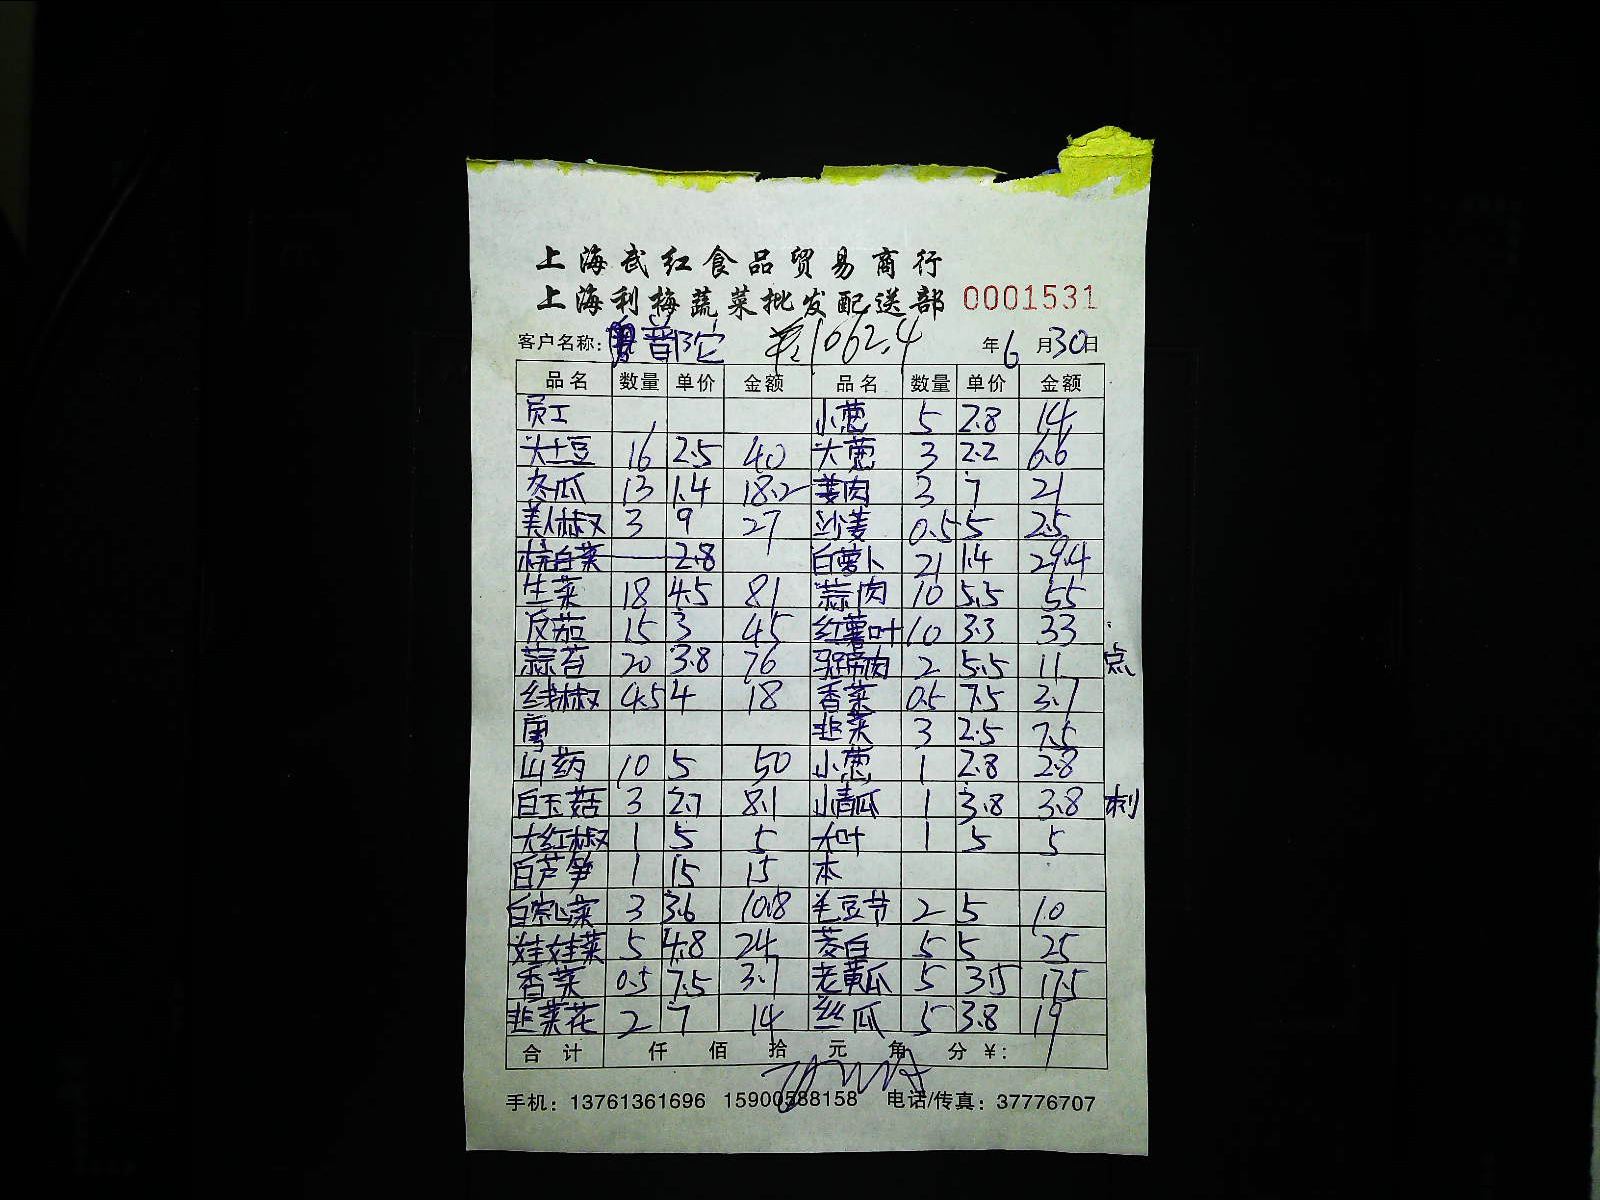 上海武红食品贸易商行
上海利梅蔬菜批发配送部 0001531
客户名称: 普陀 1062.4 年6月30日
品名 数量 单价 金额 品名 数量 单价 金额
员工 小葱 5 2.8 14
大土豆 16 2.5 40 大葱 3 2.2 6.6
冬瓜 13 1.4 18.2 姜肉 3 7 21
美人椒 3 9 27 沙姜 0.5 5 2.5
杭白菜 2.8 白萝卜 21 1.4 29.4
生菜 18 4.5 81 蒜肉 10 5.5 55
反茄 15 3 45 红薯叶 10 3.3 33
蒜苔 20 3.8 76 马蹄肉 2 5.5 11 点
线椒 4.5 4 18 香菜 0.5 7.5 3.7
韭菜 3 2.5 7.5
山药 10 5 50 小葱 1 2.8 2.8
白玉菇 3 2.7 8.1 小青瓜 1 3.8 3.8 刺
大红椒 1 5 5 大叶 1 5 5
白芦笋 1 15 15 本
白空心菜 3 3.6 10.8 毛豆节 2 5 10
娃娃菜 5 4.8 24 茭白 5 5 25
香菜 0.5 7.5 3.7 老黄瓜 5 3.5 17.5
韭菜花 2 7 14 丝瓜 5 3.8 19
合计 仟 佰 拾 元 角 分 ¥:
手机: 13761361696 15900588158 电话/传真: 37776707